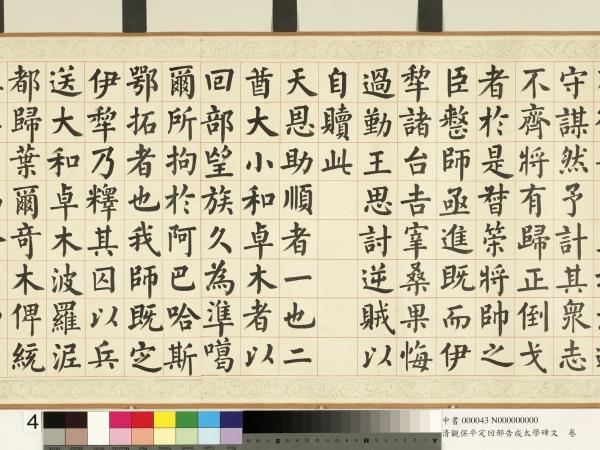 守謀然予計其衆志
不齊將有歸正倒戈
者於是督策將帥之
臣整師亟進既而伊
犂諸台吉宰桑果悔
過勤王思討逆賊以
自贖此
天恩助順者一也二
酋大小和卓木者以
回部望族久為準噶
爾所拘於阿巴哈斯
鄂拓者也我師既定
伊犂乃釋其囚以兵
送大和卓木波羅泥
都歸葉爾奇木俾統
4
中書 000043 N000000000
清觀保平定回部告成太學碑文 卷